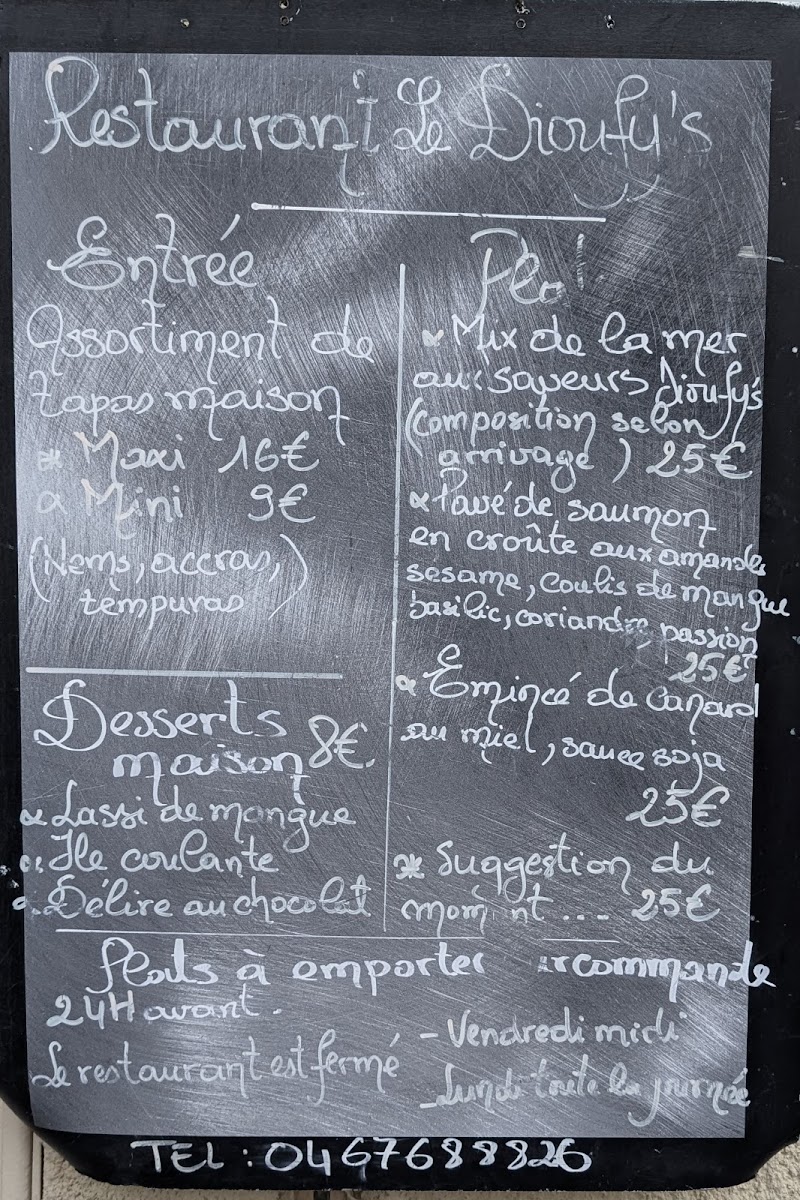 Restaurant Le Dioufy's
Entrée
Assortiment de
tapas maison
* Maxi 16€
* Mini 9€
(Nems, accras,)
tempuras
Desserts
maison 8€
* Lassi de mangue
* Île coulante
* Délire au chocolat
Plat
* Mix de la mer
aux saveurs Dioufy's
(composition selon
arrivage) 25€
* Pavé de saumon
en croûte aux amandes
sesame, coulis de mangue
basilic, coriandre, passion
25€
* Emincé de canard
au miel, sauce soja
25€
* Suggestion du
moment... 25€
Plats à emporter sur commande
24H avant.
Le restaurant est fermé
- Vendredi midi
- Lundi toute la journée
TEL : 0467688826